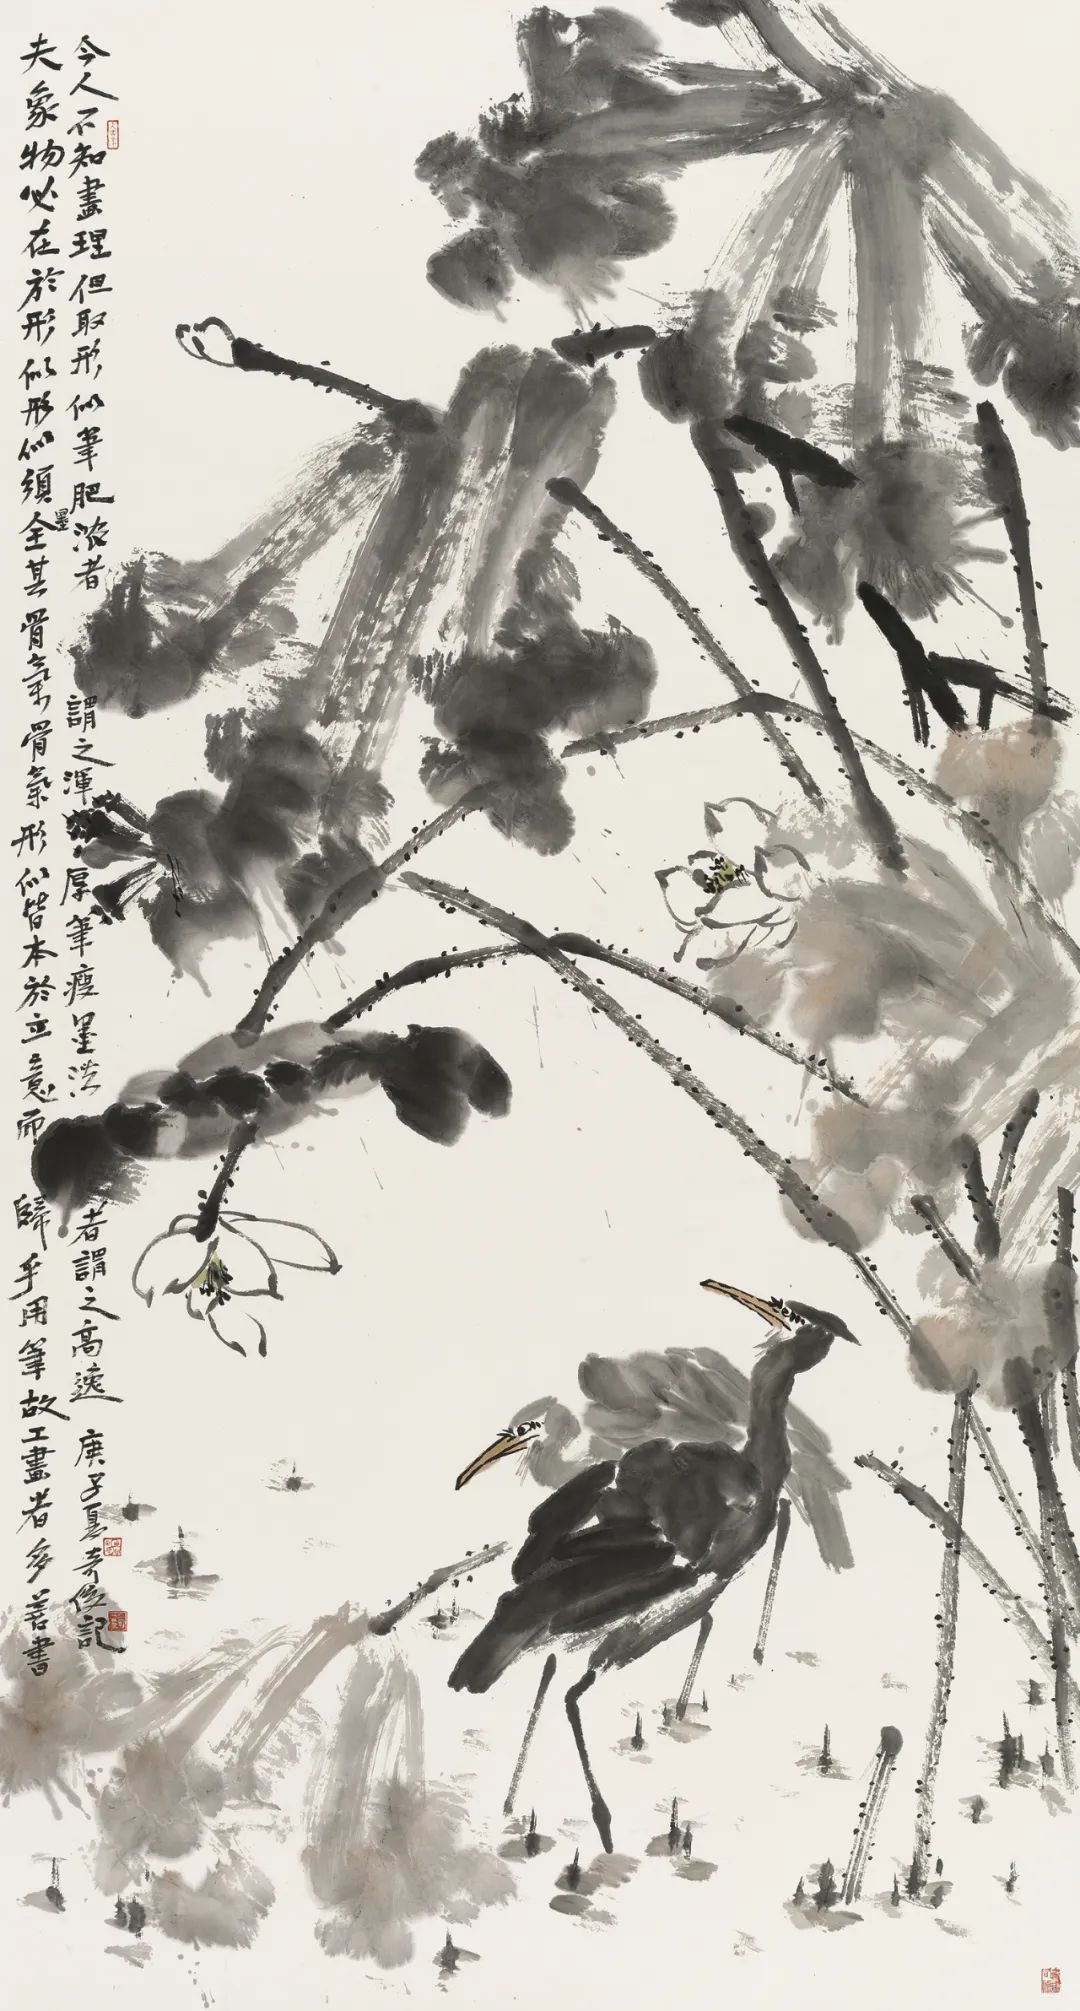 夫象物必在於形似形似須全其骨氣骨氣形似皆本於立意而歸乎用筆故工畫者多善書
今人不知畫理但取形似筆肥墨浓者謂之渾厚筆瘦墨淡者謂之高逸 庚子夏奇俊記